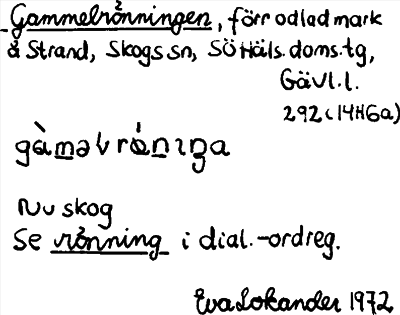 Gammelrönningen, förr odlad mark
å Strand, Skogs sn, SöHäls.doms.tg,
Gävl.l.
292 (14H6a)
gàməlrǿnıŋa
Nu skog
Se rönning i dial.-ordreg.
Eva Lokander 1972